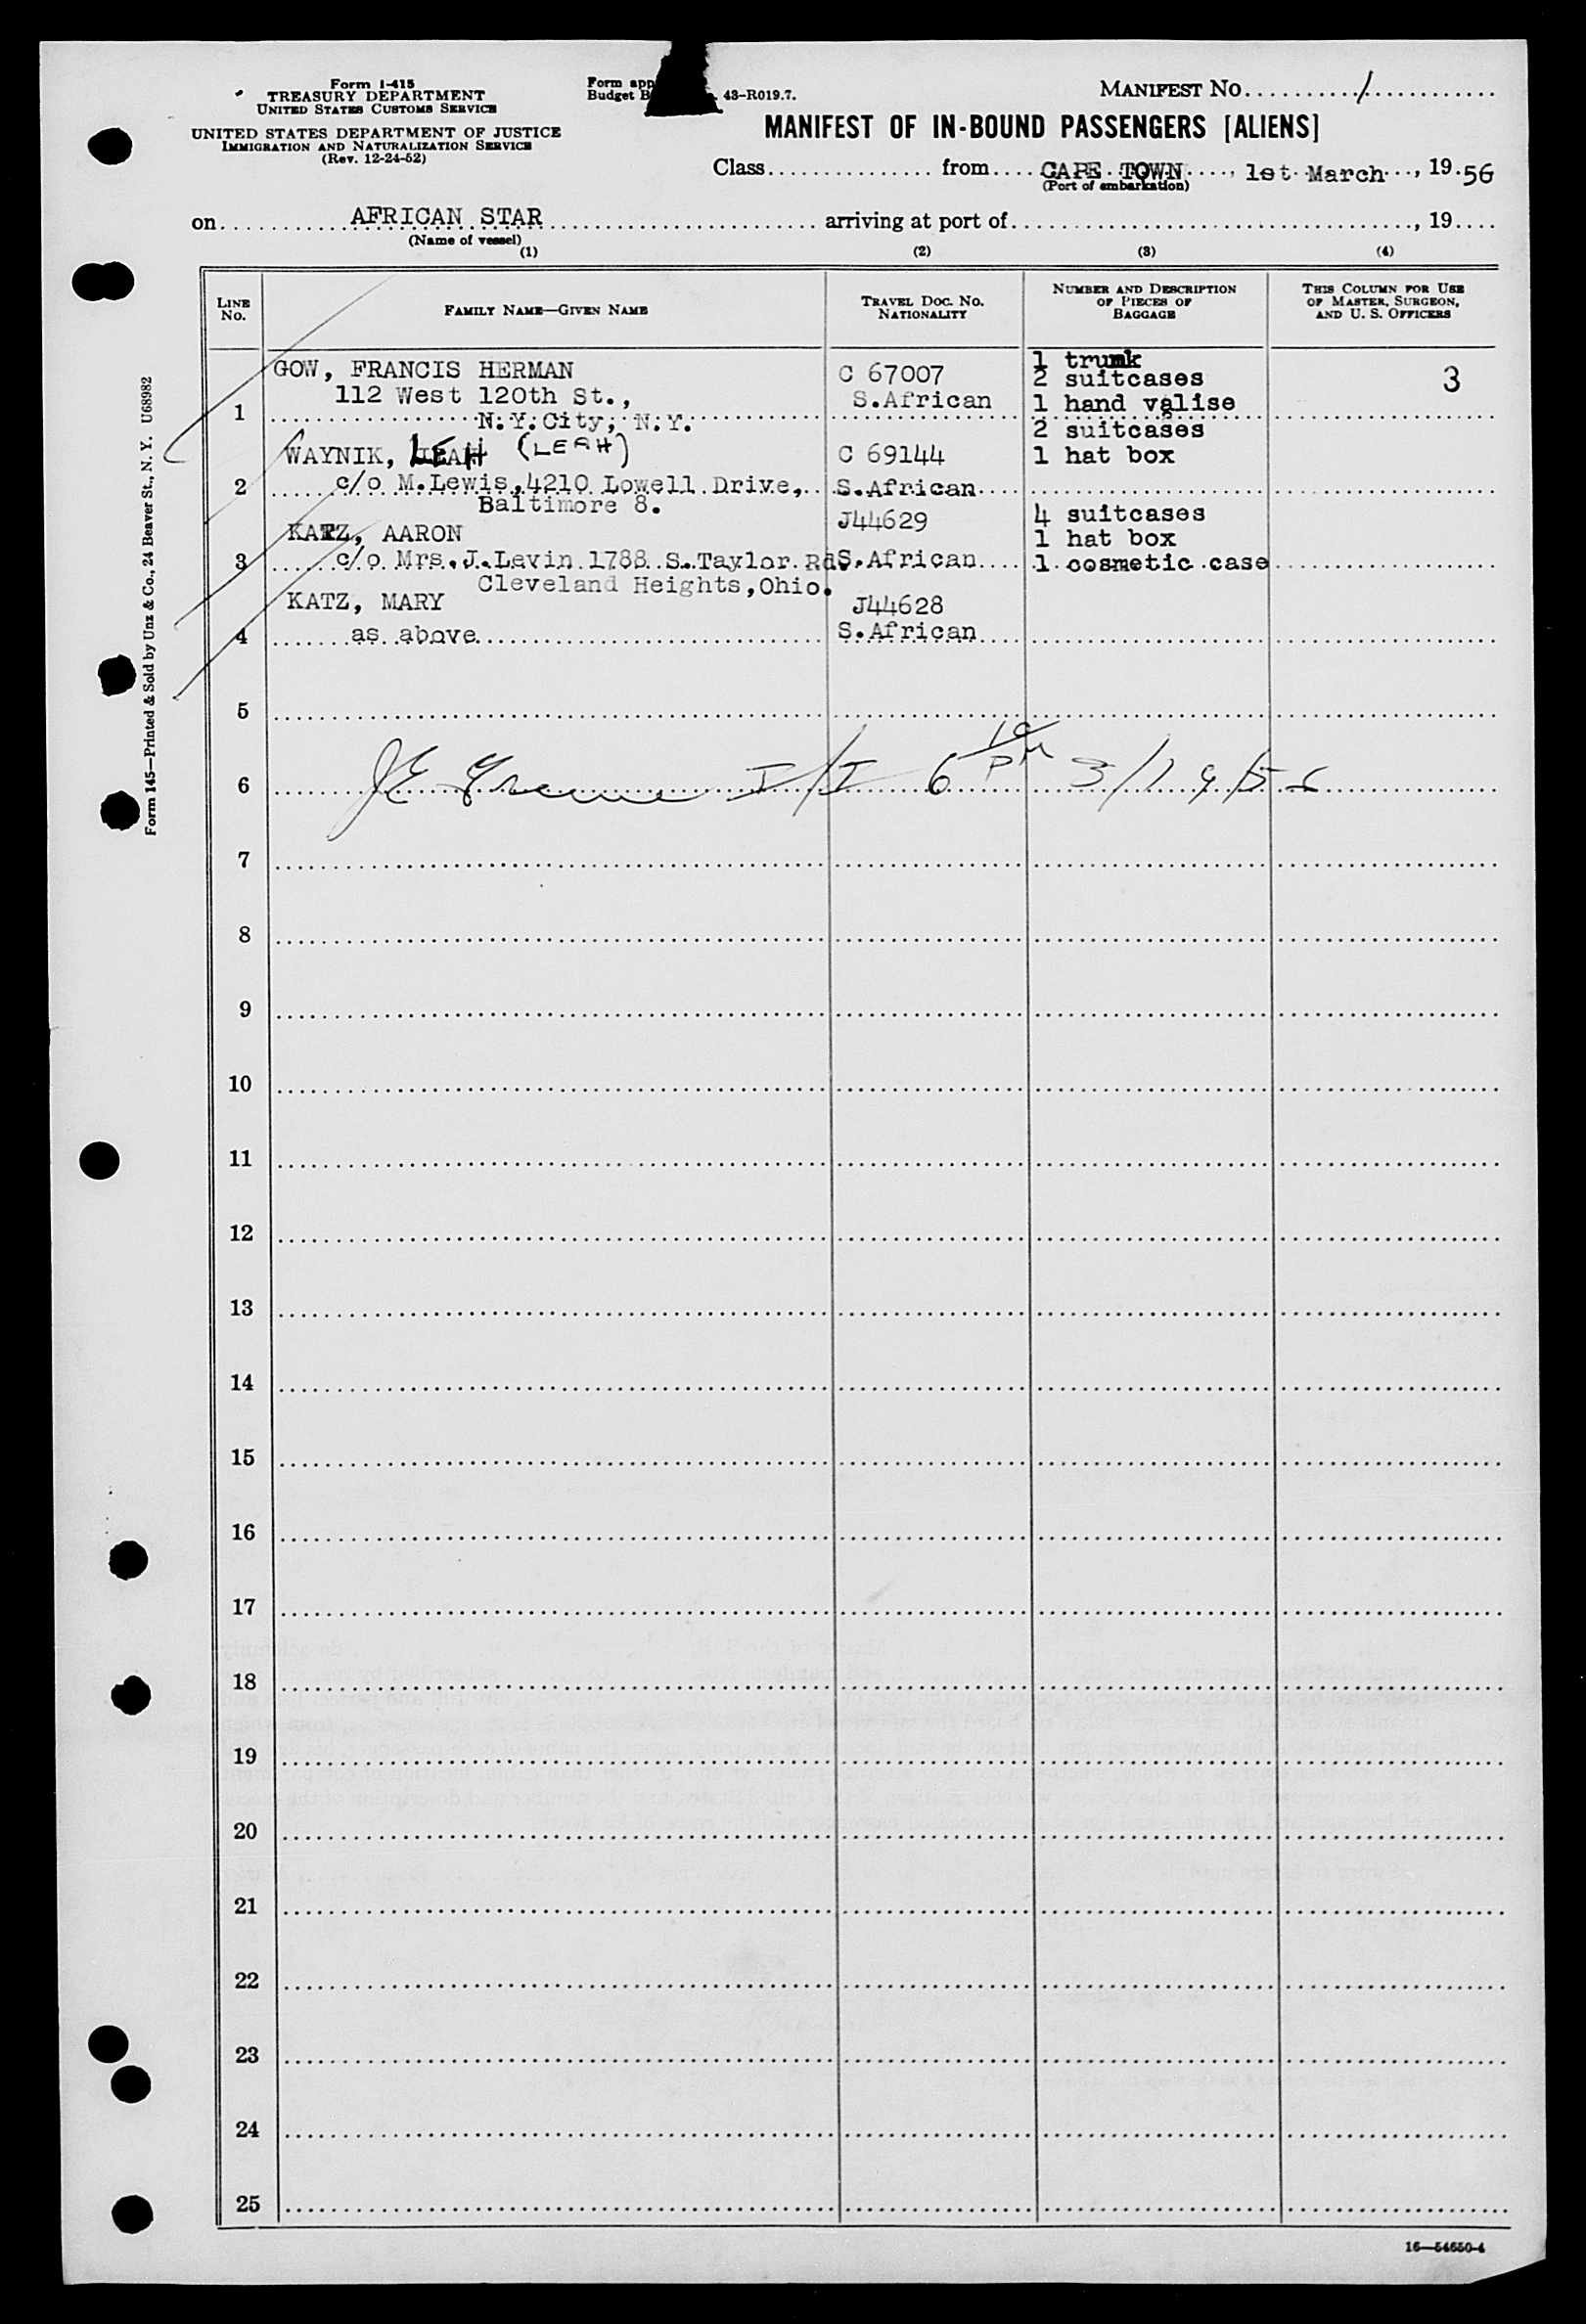 Form I-415
TREASURY DEPARTMENT
UNITED STATES CUSTOMS SERVICE
UNITED STATES DEPARTMENT OF JUSTICE
IMMIGRATION AND NATURALIZATION SERVICE
(Rev. 12-24-52)
Form app
Budget B 43-R019.7.
MANIFEST NO. 1
MANIFEST OF IN-BOUND PASSENGERS [ALIENS]
Class from CAPE TOWN, 1st March, 1956
(Port of embarkation)
on AFRICAN STAR arriving at port of , 19
(Name of vessel)
(1) (2) (3) (4)
LINE NO.
FAMILY NAME—GIVEN NAME
TRAVEL DOC. NO. NATIONALITY
NUMBER AND DESCRIPTION OF PIECES OF BAGGAGE
THIS COLUMN FOR USE OF MASTER, SURGEON, AND U. S. OFFICERS
GOW, FRANCIS HERMAN C 67007 1 trunk 3
112 West 120th St., S.African 2 suitcases
1 N.Y.City, N.Y. 1 hand valise
2 suitcases
WAYNIK, LEAH (LEAH) C 69144 1 hat box
2 c/o M.Lewis,4210 Lowell Drive, S.African
Baltimore 8.
KATZ, AARON J44629 4 suitcases
1 hat box
3 c/o Mrs.J.Levin 1788 S.Taylor Rd. S.African 1 cosmetic case
Cleveland Heights,Ohio.
KATZ, MARY J44628
4 as above S.African
5
6 6 PM 3/19/56
7
8
9
10
11
12
13
14
15
16
17
18
19
20
21
22
23
24
25
Form 145—Printed & Sold by Unz & Co., 24 Beaver St., N. Y. U68982
16—54650-4